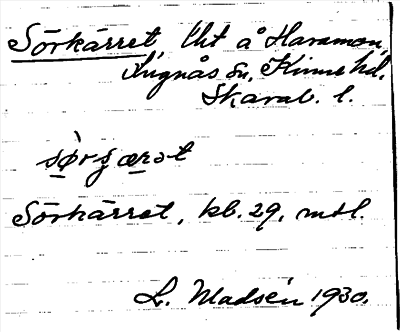 Sörkärret, lht å Haramon,
Lugnås sn, Kinne hd.
Skarab. l.
sørʂærət
Sörkärret, kb. 29, mtl.
L. Madsén 1930.